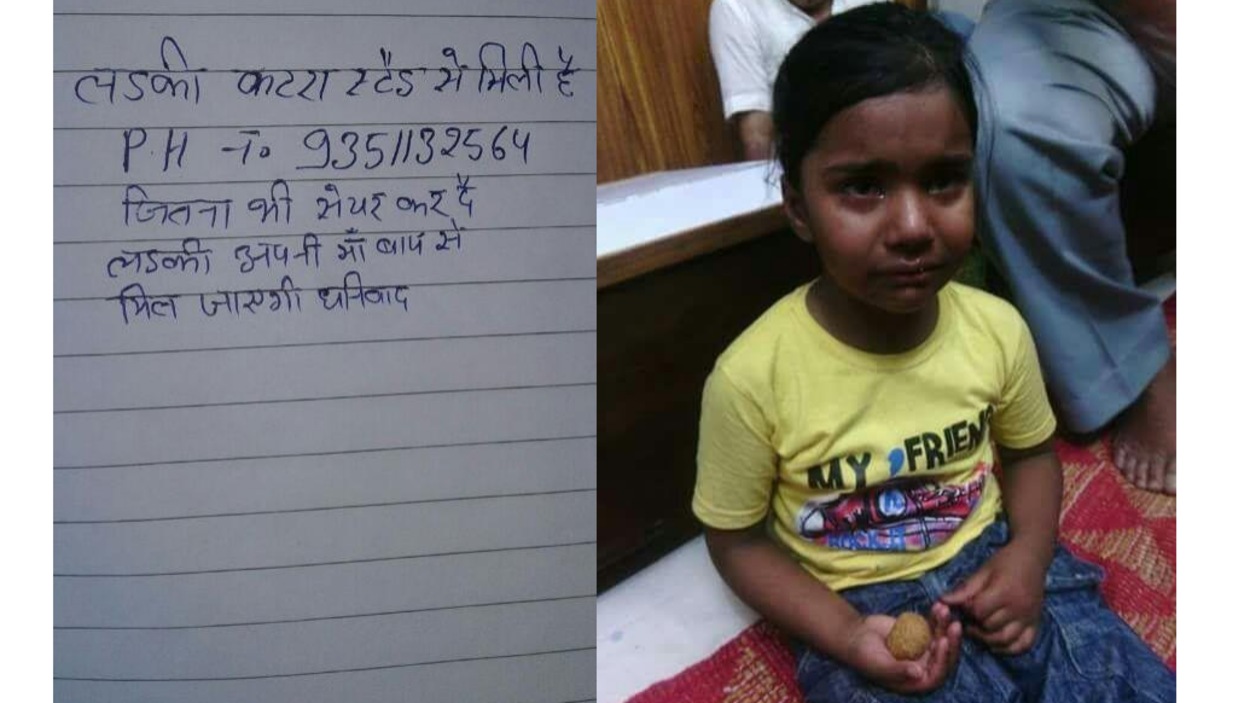 लडकी कटरा स्टैंड से मिली है
P.H न० 9351132564
जितना भी सेयर कर दै
लडकी अपनी माँ बाप से
मिल जाएगी धनिवाद
MY FRIEN
ROCK IT